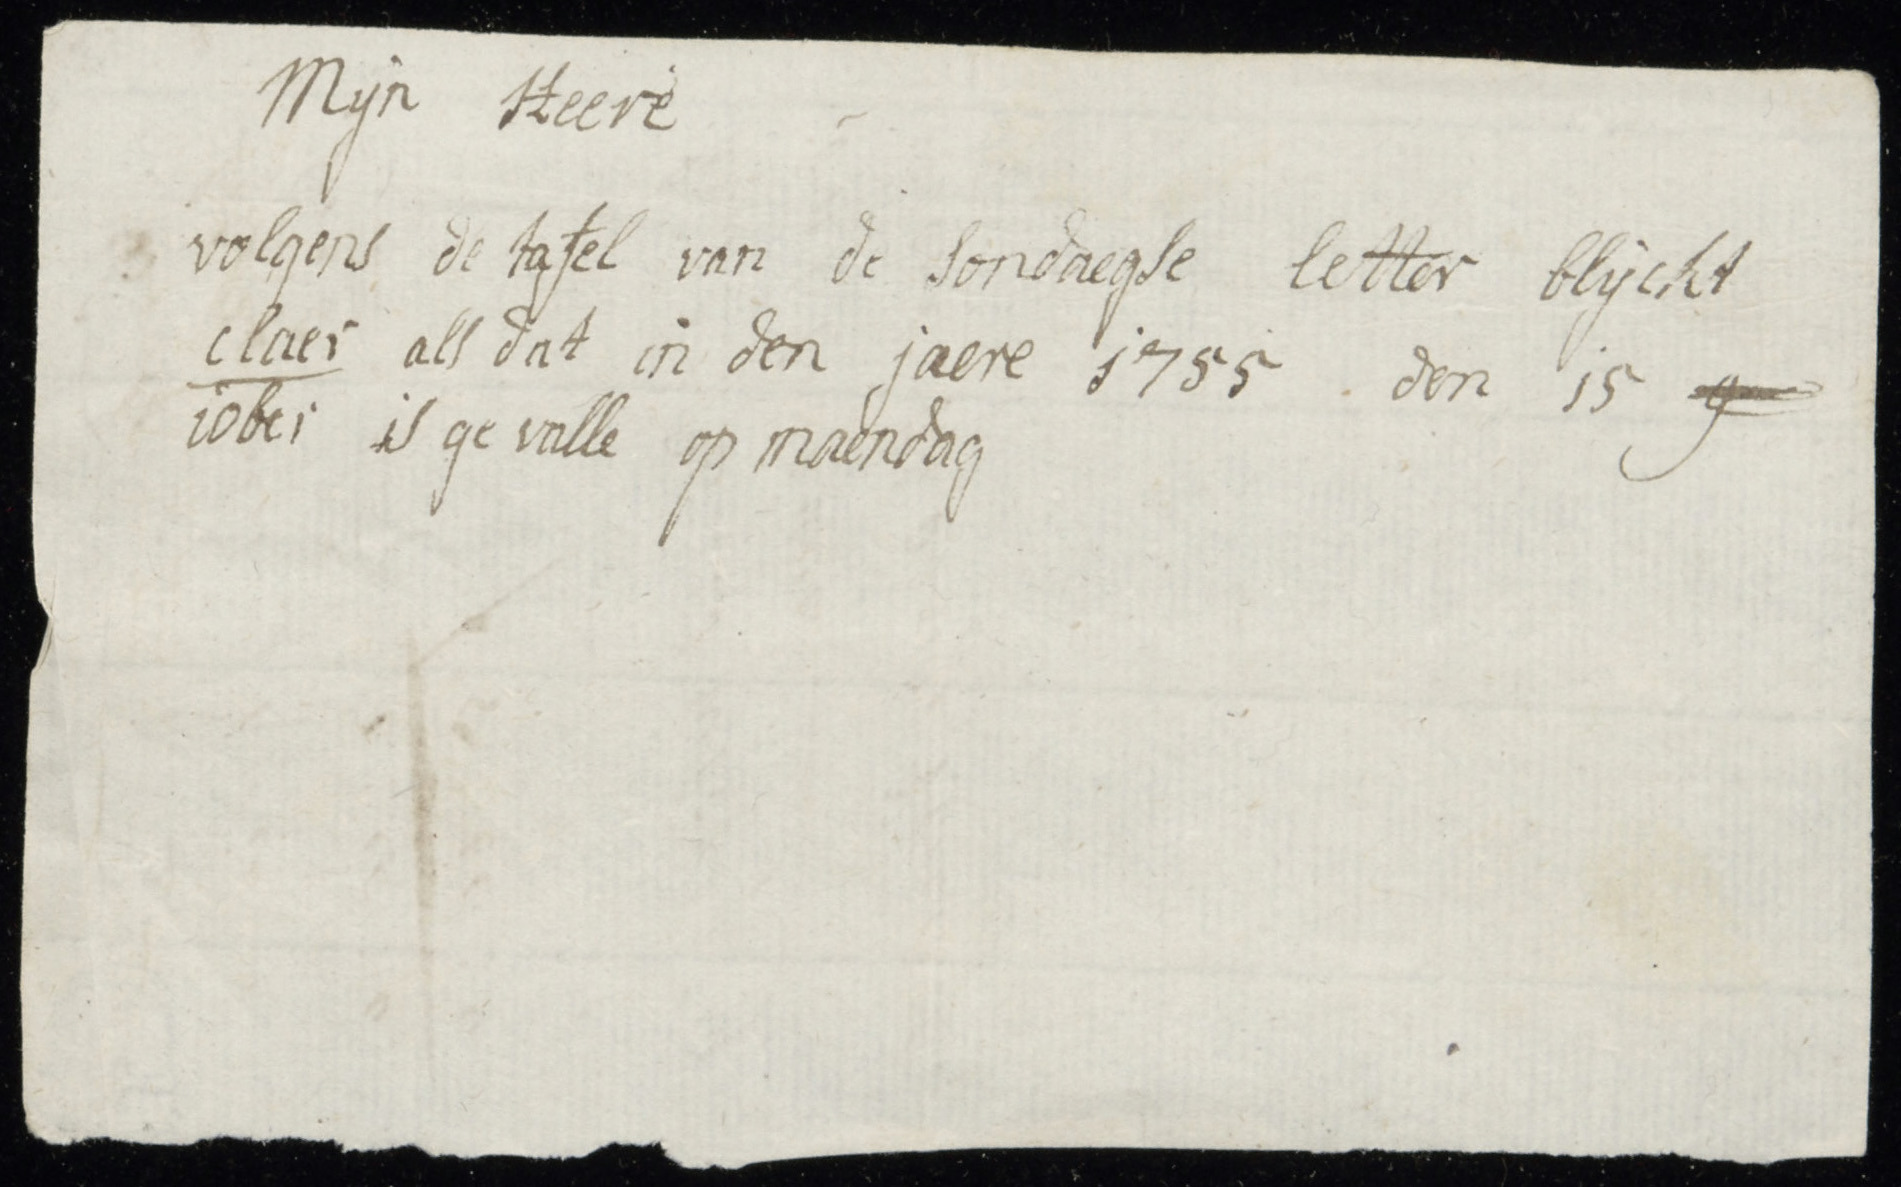 Mijn Heere
volgens de tafel van de sondaegse letter blijckt
claer als dat in den jaere 1755 den 15
10ber is ge valle op maendag